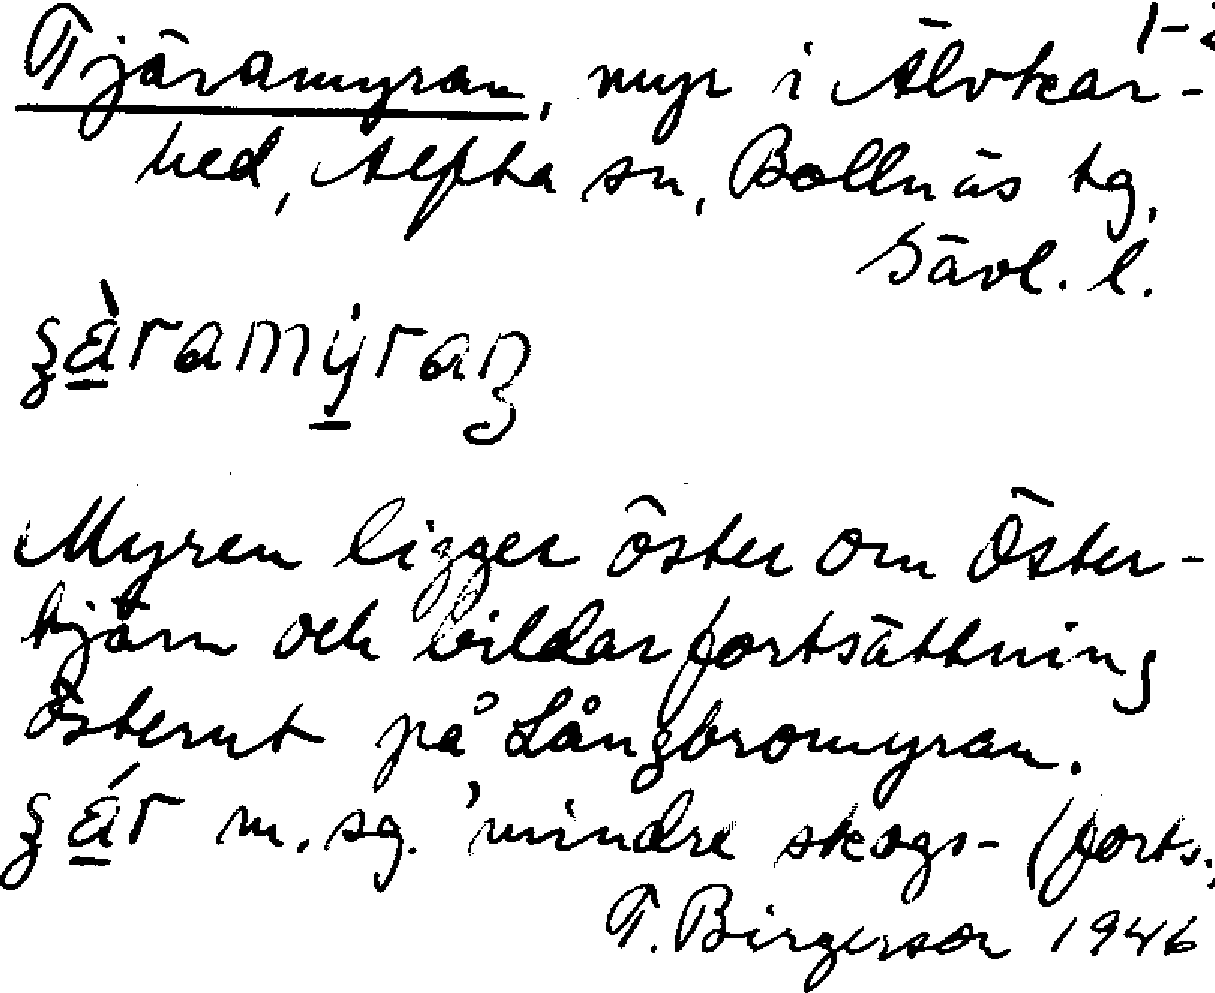 1-2
Tjäramyran, myr i Älvkar-
hed, Alfta sn, Bollnäs tg,
Gävl. l.
Myren ligger öster om Öster-
tjärn och bildar fortsättning
österut på Långbromyran.
m. sg. 'mindre skogs- (forts.)
T. Birgerson 1946